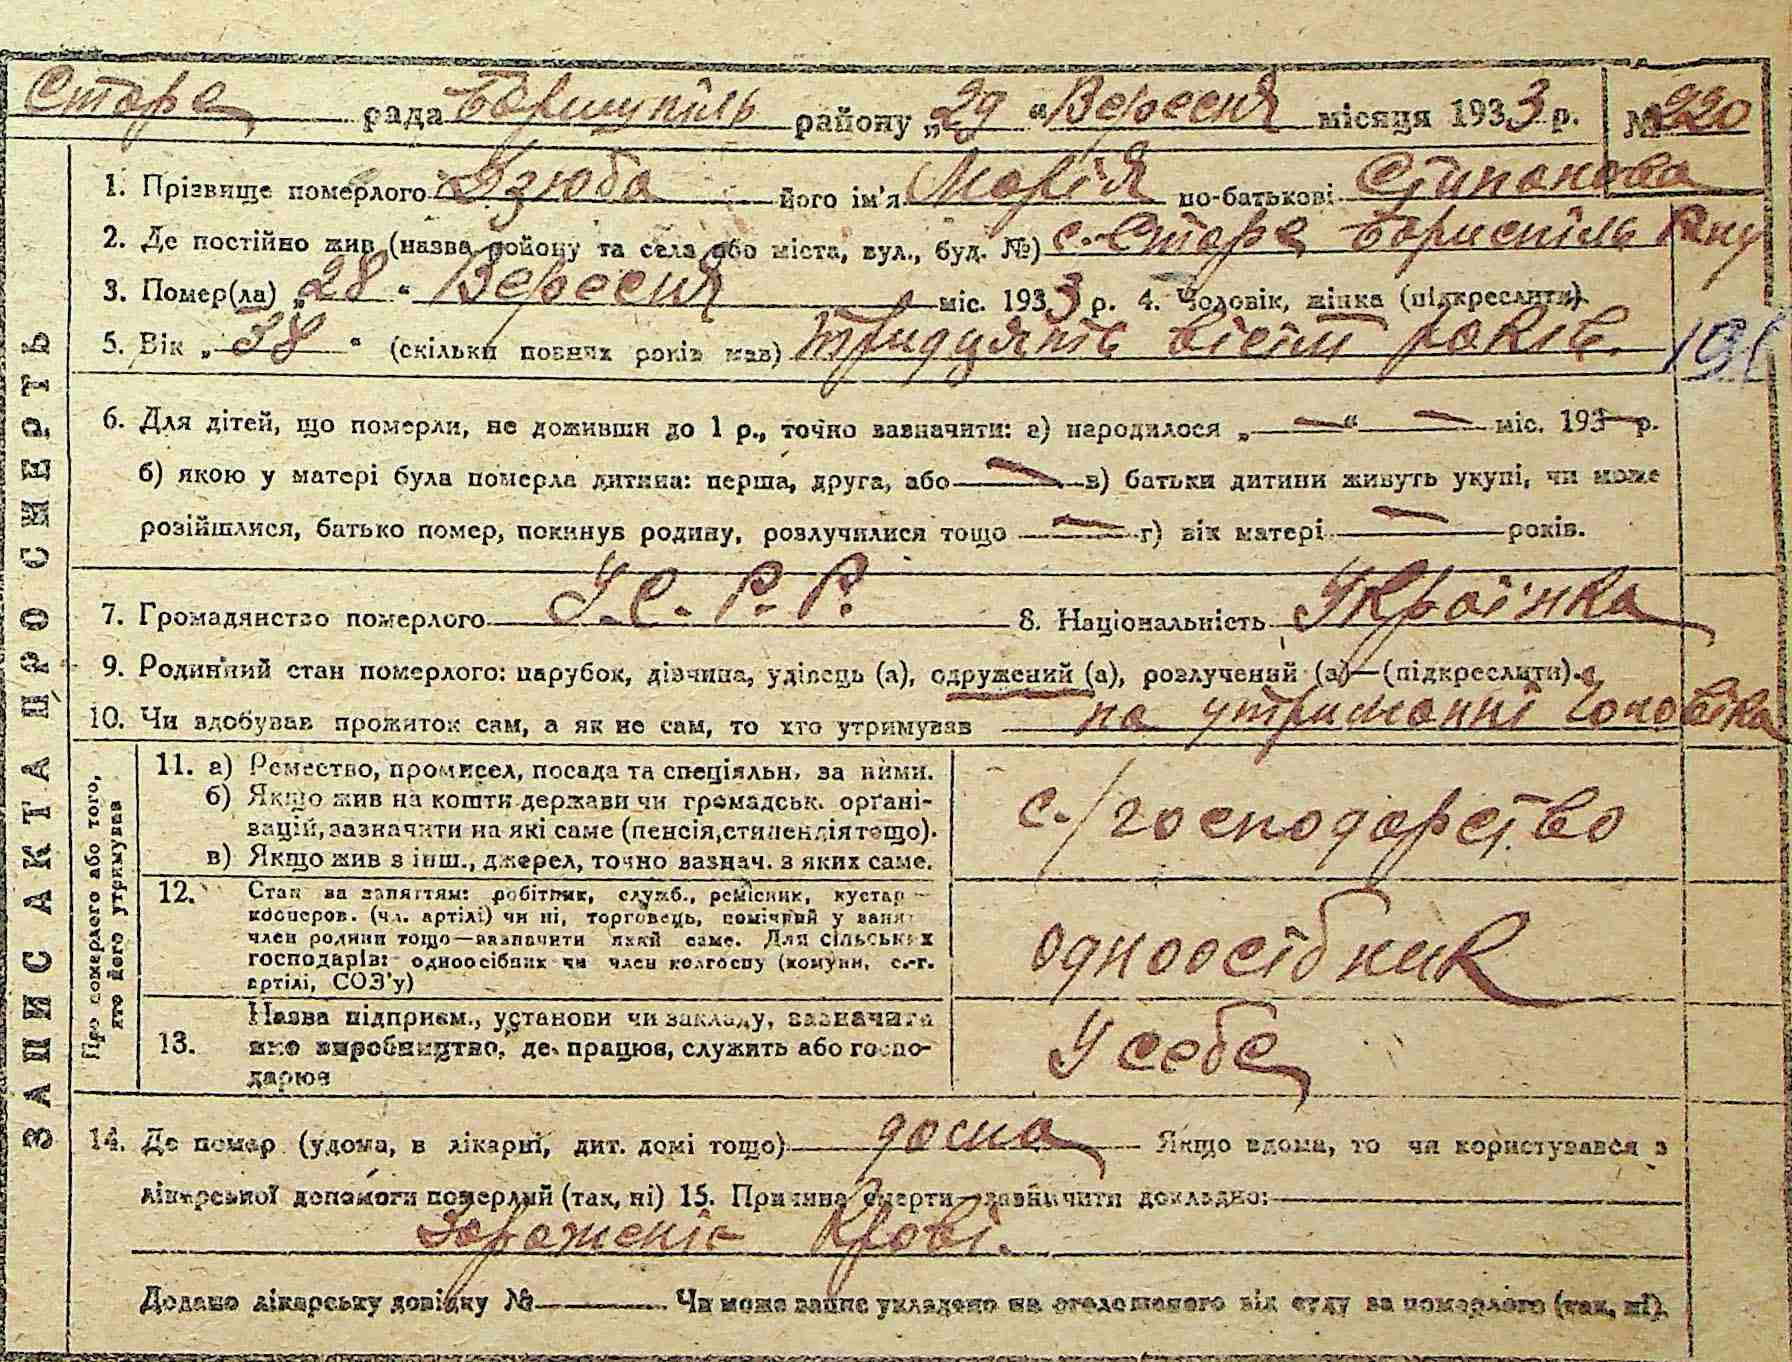 Старе рада Боришпіль району „29 “ Вересня місяця 1933 р. № 220
1. Прізвище померлого Дзюба його ім'я Марія по-батькові Стипанова
2. Де постійно жив (назва району та села або міста, вул., буд. №) с. Старе Бориспіль Рну
3. Помер(ла) „28 “ Вересня міс. 1933 р. 4. Чоловік, жінка (підкреслити)
5. Вік „ 38 “ (скільки повних років мав) тридцять вісім років.
6. Для дітей, що померли, не доживши до 1 р., точно зазначити: а) народилося „ — “ — міс. 193— р.
б) якою у матері була померла дитина: перша, друга, або — в) батьки дитини живуть укупі, чи може
розійшлися, батько помер, покинув родину, розлучилися тощо — г) вік матері — років.
7. Громадянство померлого У.С.Р.Р. 8. Національність Українка
9. Родинний стан померлого: парубок, дівчина, удівець (а), одружений (а), розлучений (а)—(підкреслити).
10. Чи здобував прожиток сам, а як не сам, то хто утримував на утриманні чоловіка
ЗАПИС АКТА ПРО СМЕРТЬ
Про померлого або того,
хто його утримував
11. а) Ремество, промисел, посада та спеціяльн. за ними.
б) Якщо жив на кошти держави чи громадськ. орґані-
зацій, зазначити на які саме (пенсія, стипендія тощо).
в) Якщо жив з інш., джерел, точно зазнач. з яких саме.
с./господарство
12. Стан за заняттям: робітник, служб., ремісник, кустар —
кооперов. (чл. артілі) чи ні, торговець, помічний у заня
член родини тощо—зазначити який саме. Для сільських
господарів: одноосібник чи член колгоспу (комуни, с.-г.
артілі, СОЗ'у)
одноосібник
13. Назва підприєм., установи чи закладу, зазначити
яке виробництво, де працює, служить або госпо-
дарює
У себе
14. Де помер (удома, в лікарні, дит. домі тощо) дома Якщо вдома, то чи користувався з
лікарської допомоги померлий (так, ні) 15. Причина смерти зазначити докладно:
Зараженіє крові.
Додано лікарську довідку № — Чи може запис укладено на оголошеного від суду за померлого (так, ні).